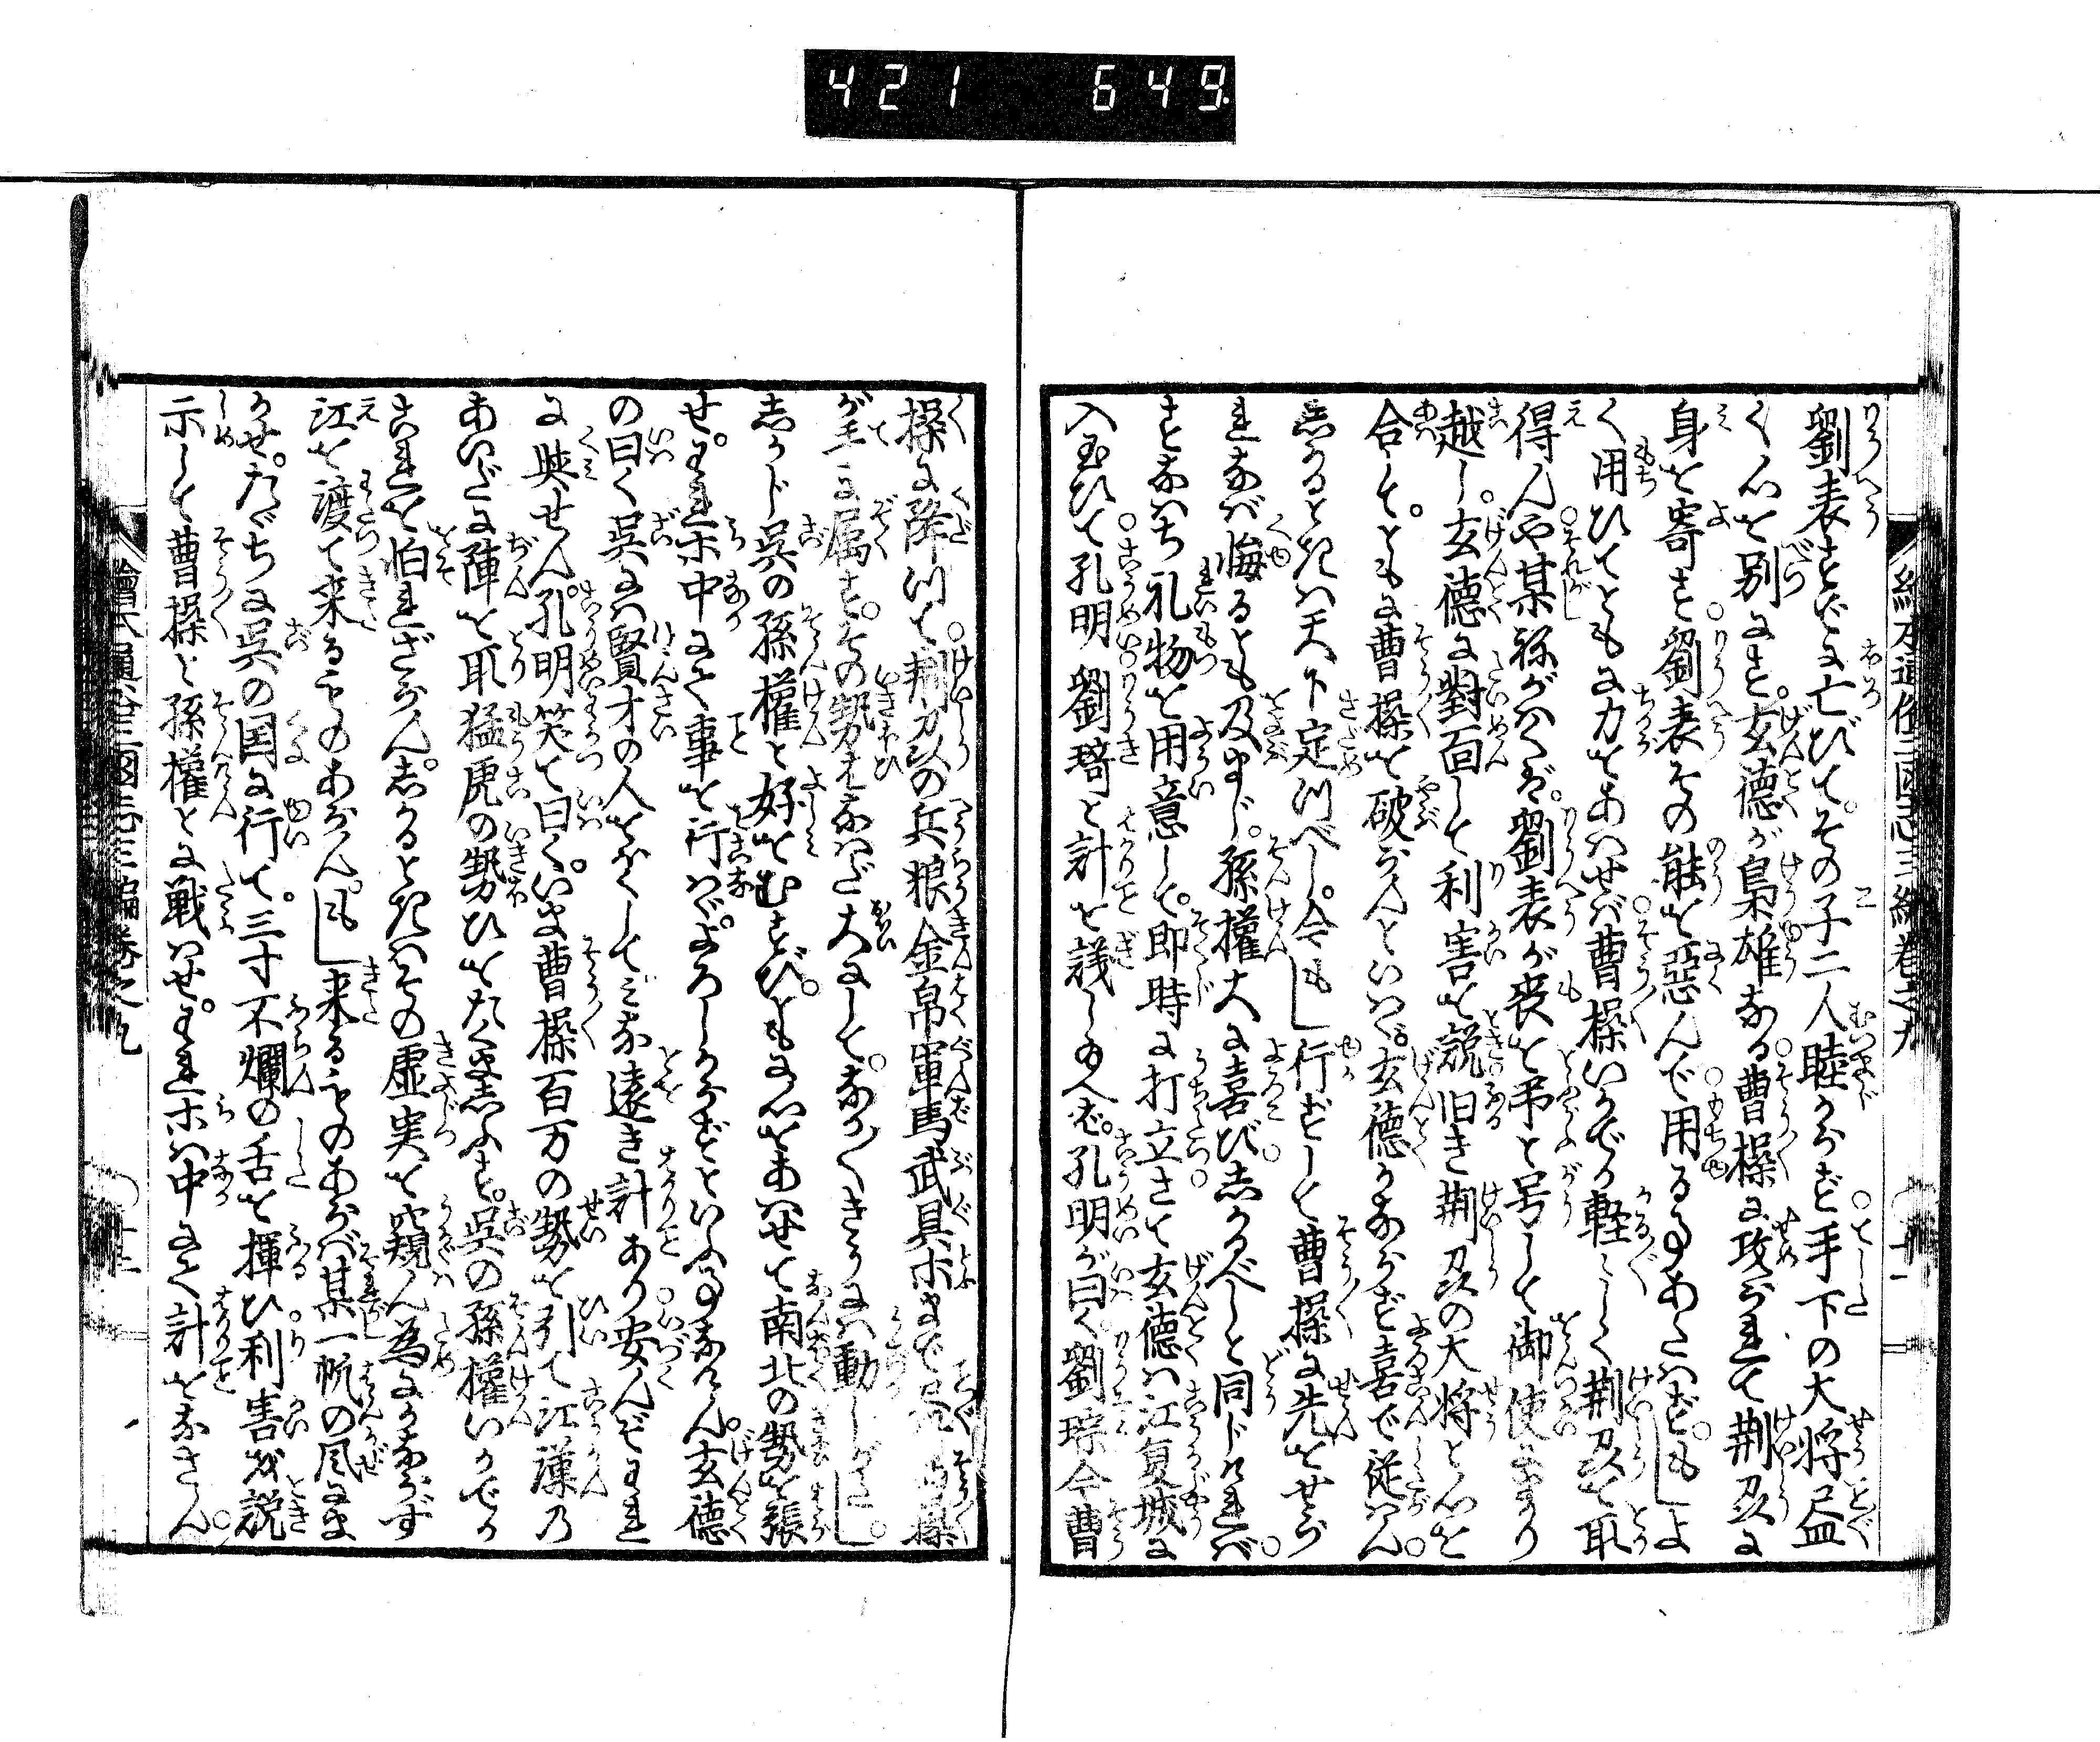 421 649
劉表すでに亡びて。その子二人睦からず手下の大将尽
く心を別にす。玄徳が梟雄なる曹操に攻られて荊州に
身を寄す劉表その能を悪んで用る事あたはずもしよ
く用ひてともに力をあはせば曹操いかでか軽々しく荊州を取
得んや某ねがはくば。劉表が喪を弔と号して御使にまかり
越し。玄徳に対面して利害を説旧き荊州の大将と心を
合して。ともに曹操を破らんといはゞ。玄徳かならず喜で従はん
しかるときは天下定つべし。今もし行ずして曹操に先をせら
れなば悔るとも及まじ。孫権大に喜びしかるべしと同じければ
すなはち礼物を用意して。即時に打立さて玄徳は江夏城に
入玉ひて孔明劉琦と計を議し玉へば。孔明が曰く劉琮今曹
操に降つて荊州の兵粮金帛軍馬武具ホまで尽く曹操
が手に属す。その勢はなはだ大にして。なか〳〵きうには動しがたし。
しかじ呉の孫権と好をむすび。ともに心をあはせて南北の勢を張
せ。われホ中にて事を行はゞ。よろしからずといふ事なけん。玄徳
の曰く呉には賢才の人をゝくしてみな遠き計あり安んぞわれ
に与せん。孔明笑て曰く。いま曹操百万の勢を引て江漢乃
あいだに陣を取猛虎の勢ひをたくましふす。呉の孫権いかでか
これを怕れざらん。しかるときはその虚実を窺ん為にかならず
江を渡て来るものあらん。もし来るものあらば某一帆の風にま
かせ。たゞちに呉の国に行て。三寸不爛の舌を揮ひ利害を説
示して曹操と孫権とに戦はせ。われホは中にて計をなさん
繪本通俗三国志三編巻之九
十二